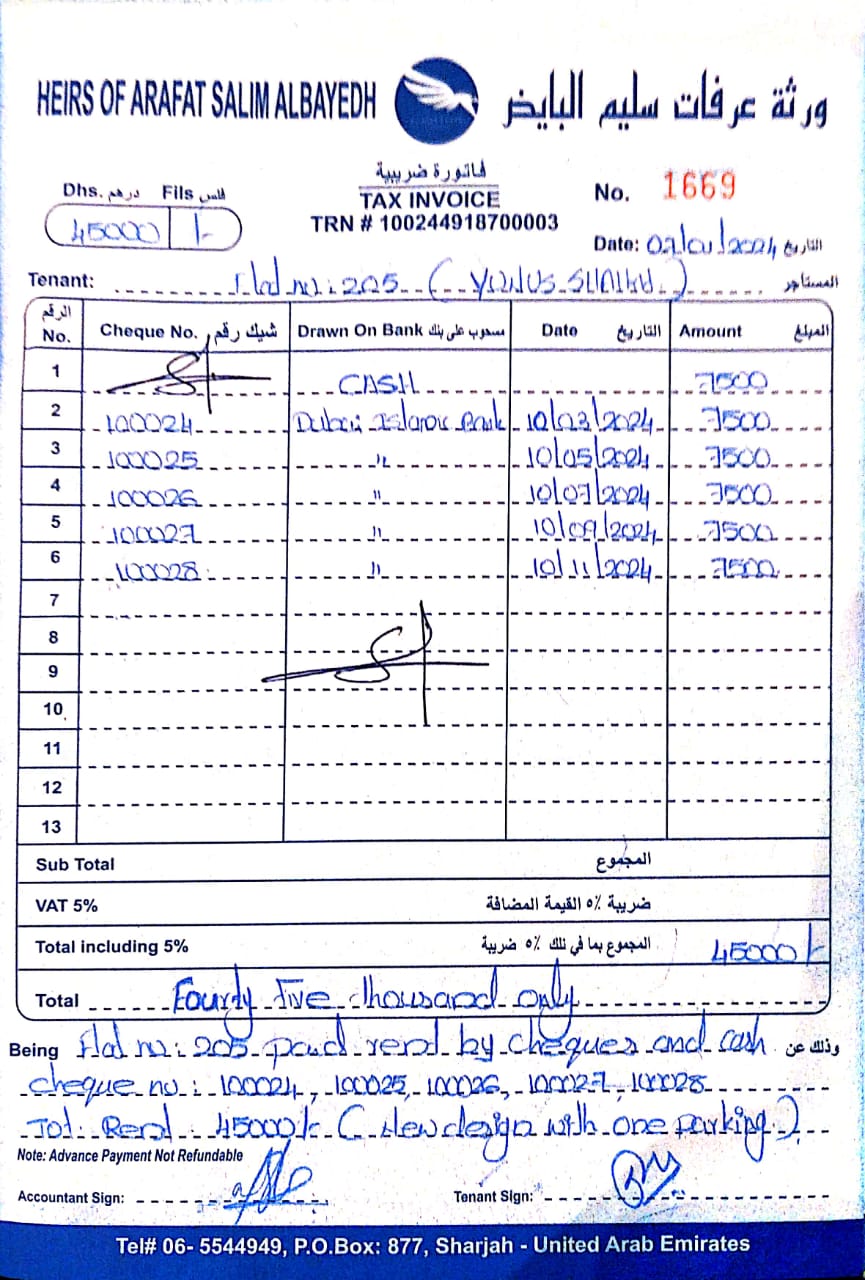 HEIRS OF ARAFAT SALIM ALBAYEDH ورثة عرفات سليم البايض
Dhs. درهم Fils فلس
45000 /-
فاتورة ضريبية
TAX INVOICE
TRN # 100244918700003
No. 1669
Date: 02/01/2024 التاريخ
Tenant: Flat no: 205 (YUNUS SHAIKH) المستاجر
الرقم No. Cheque No. شيك رقم Drawn On Bank مسحوب على بنك Date التاريخ Amount المبلغ
1 CASH 7500
2 100024 Dubai Islamic Bank 10/03/2024 7500
3 100025 " 10/05/2024 7500
4 100026 " 10/07/2024 7500
5 100027 " 10/09/2024 7500
6 100028 " 10/11/2024 7500
7
8
9
10
11
12
13
Sub Total المجموع
VAT 5% ضريبة ٥٪ القيمة المضافة
Total including 5% المجموع بما في تلك ٥٪ ضريبة 45000/-
Total Fourty Five thousand only
Being Flat no: 205 paid rent by cheques and cash وذلك عن
cheque no: 100024, 100025, 100026, 100027, 100028
Tot. Rent 45000/- (New design with one parking)
Note: Advance Payment Not Refundable
Accountant Sign: Tenant Sign:
Tel# 06- 5544949, P.O.Box: 877, Sharjah - United Arab Emirates